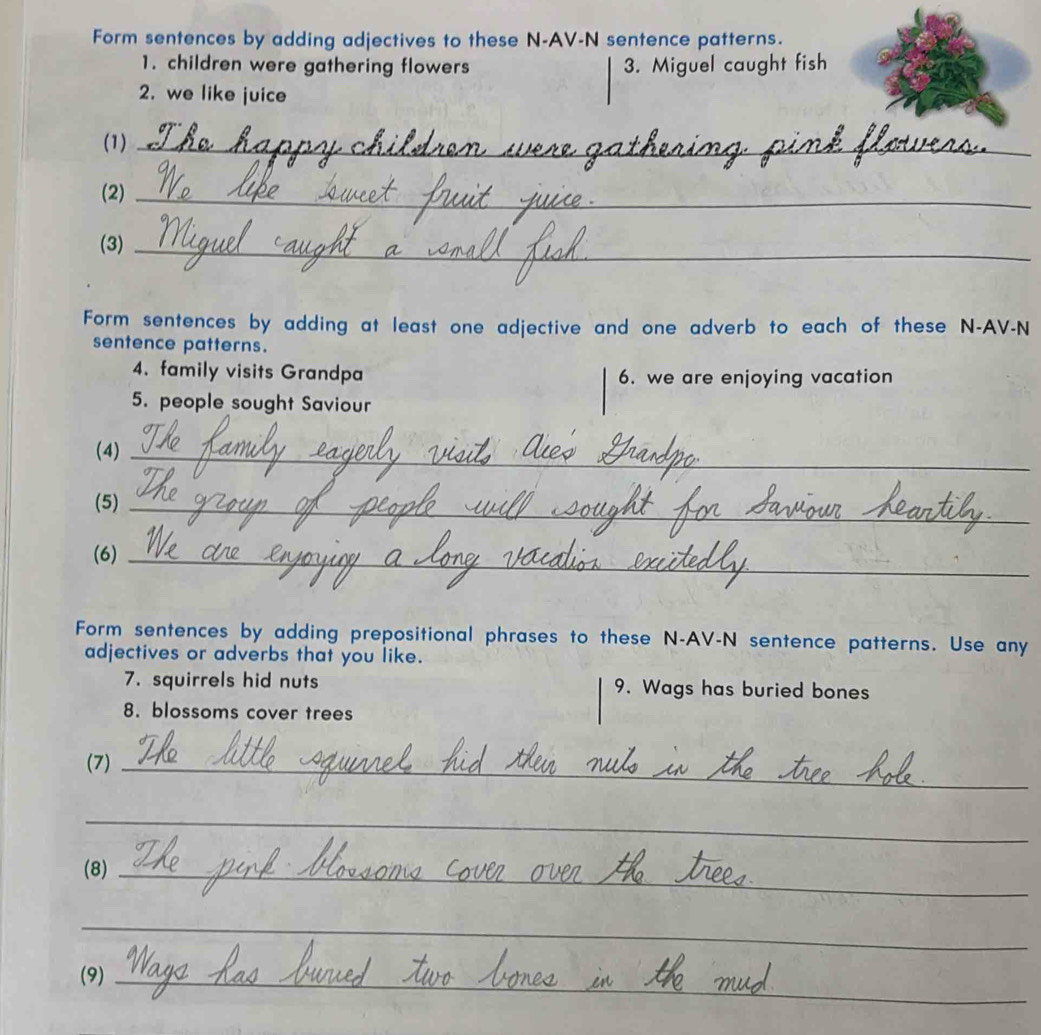 Form sentences by adding adjectives to these N-AV-N sentence patterns.
1. children were gathering flowers
3. Miguel caught fish
2. we like juice
(1) The happy children were gathering pink flowers.
(2) We like sweet fruit juice.
(3) Miguel caught a small fish.
Form sentences by adding at least one adjective and one adverb to each of these N-AV-N
sentence patterns.
4. family visits Grandpa
6. we are enjoying vacation
5. people sought Saviour
(4) The family eagerly visits Grandpa.
(5) The group of people will sought for Saviour heartily.
(6) We are enjoying a long vacation excitedly.
Form sentences by adding prepositional phrases to these N-AV-N sentence patterns. Use any
adjectives or adverbs that you like.
7. squirrels hid nuts
9. Wags has buried bones
8. blossoms cover trees
(7) The little squirrels hid their nuts in the tree hole.
(8) The pink blossoms cover over the trees.
(9) Wags has buried two bones in the mud.